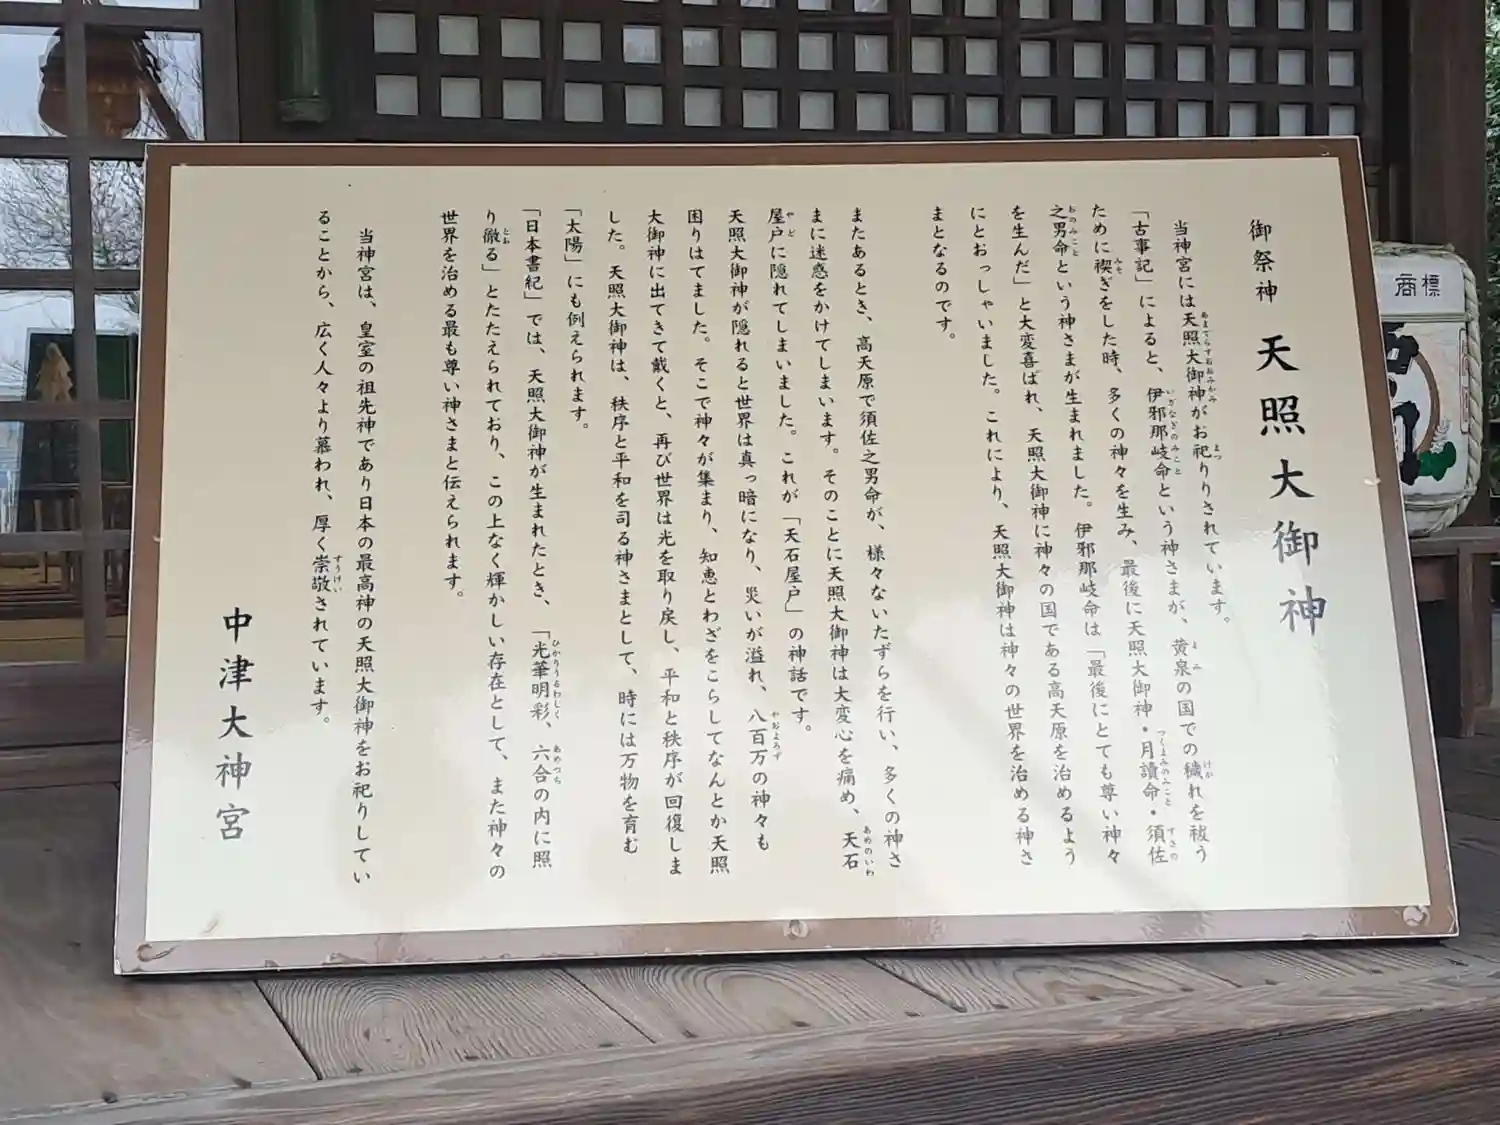 御祭神 天照大御神
当神宮には天照大御神がお祀りりされています。
「古事記」によると、伊邪那岐命という神さまが、黄泉の国での穢れを祓う
ために禊ぎをした時、多くの神々を生み、最後に天照大御神・月讀命・須佐
之男命という神さまが生まれました。伊邪那岐命は「最後にとても尊い神々
を生んだ」と大変喜ばれ、天照大御神に神々の国である高天原を治めるよう
にとおっしゃいました。これにより、天照大御神は神々の世界を治める神さ
まとなるのです。
またあるとき、高天原で須佐之男命が、様々ないたずらを行い、多くの神さ
まに迷惑をかけてしまいます。そのことに天照大御神は大変心を痛め、天石
屋戸に隠れてしまいました。これが「天石屋戸」の神話です。
天照大御神が隠れると世界は真っ暗になり、災いが溢れ、八百万の神々も
困りはてました。そこで神々が集まり、知恵とわざをこらしてなんとか天照
大御神に出てきて戴くと、再び世界は光を取り戻し、平和と秩序が回復しま
した。天照大御神は、秩序と平和を司る神さまとして、時には万物を育む
「太陽」にも例えられます。
「日本書紀」では、天照大御神が生まれたとき、「光華明彩、六合の内に照
り徹る」とたたえられており、この上なく輝かしい存在として、また神々の
世界を治める最も尊い神さまと伝えられます。
当神宮は、皇室の祖先神であり日本の最高神の天照大御神をお祀りしてい
ることから、広く人々より慕われ、厚く崇敬されています。
中津大神宮
商標